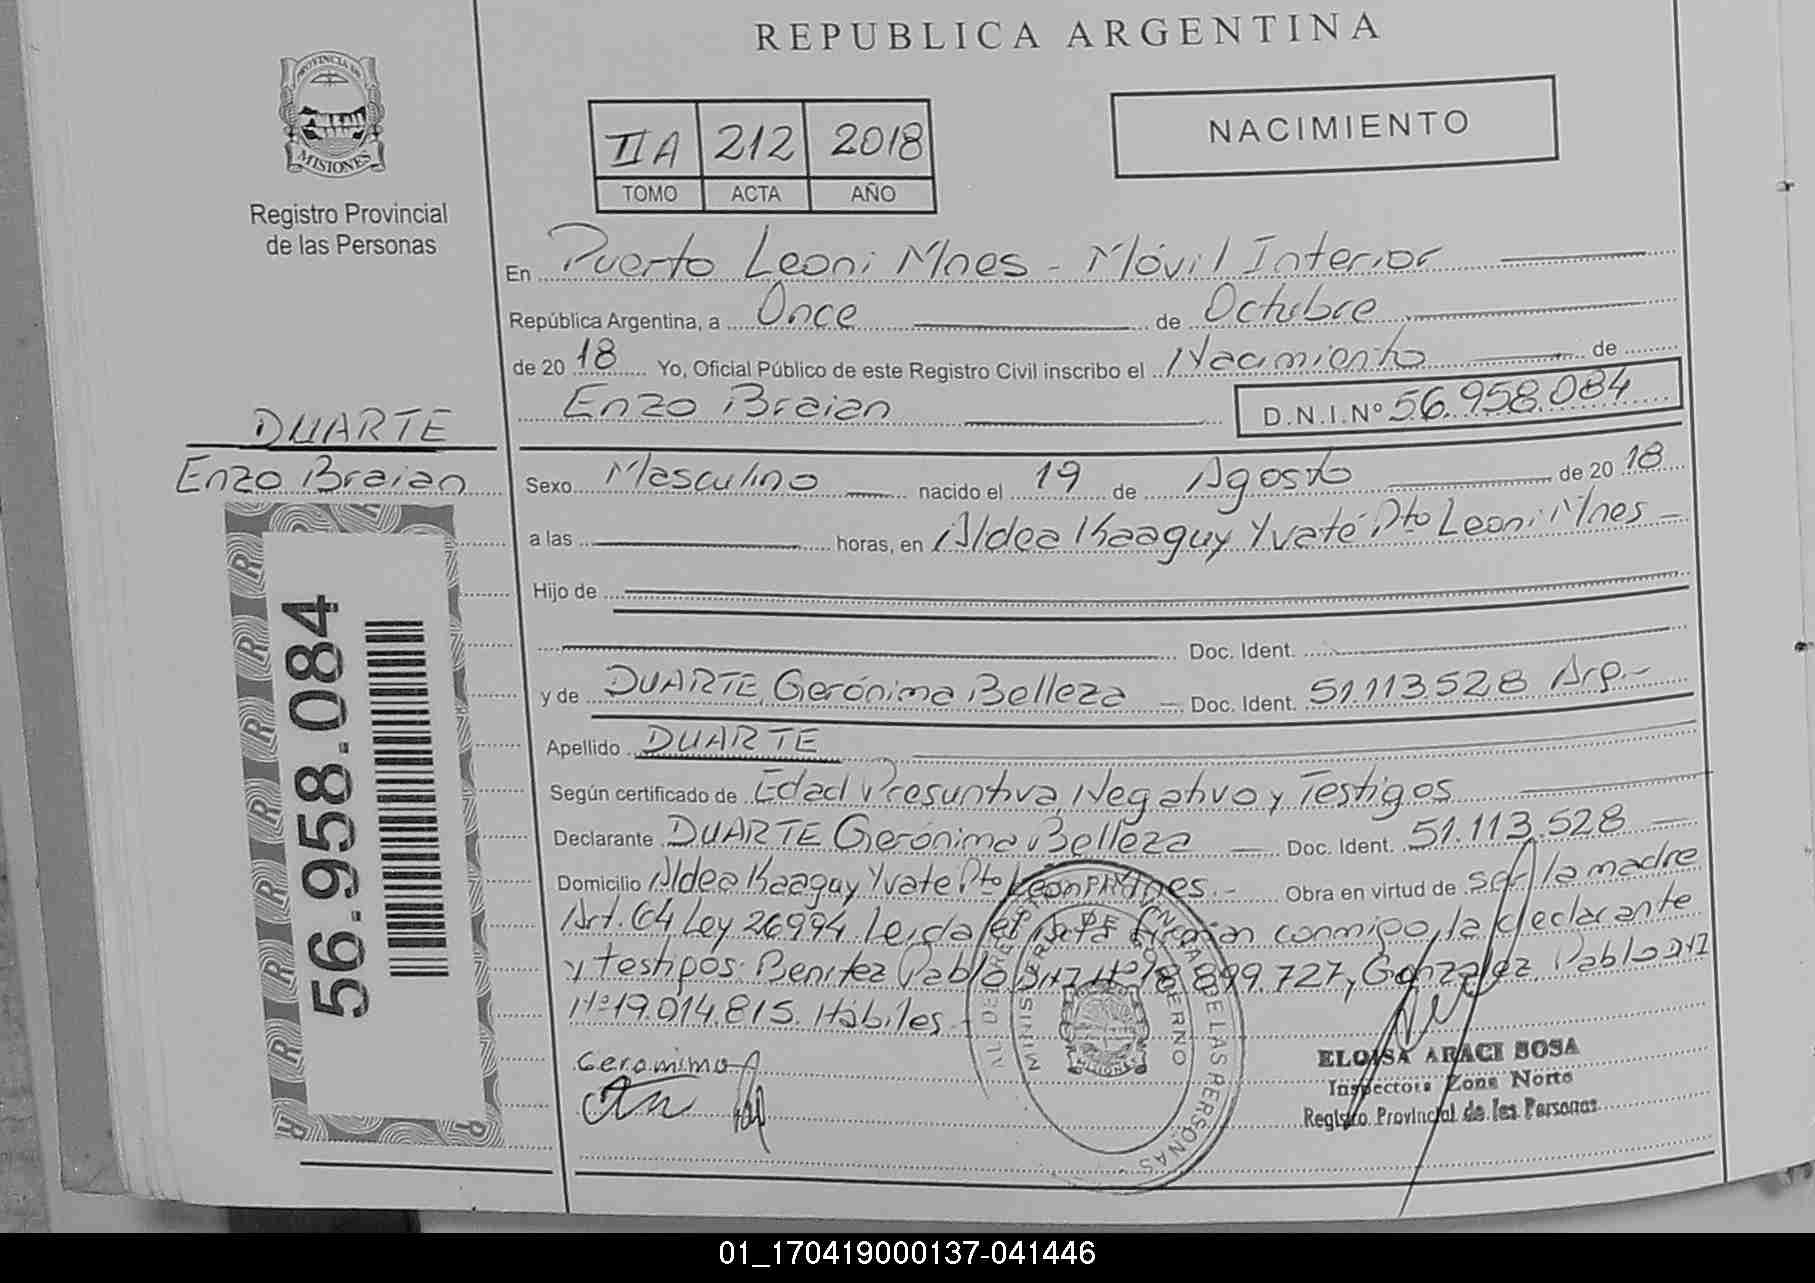 REPUBLICA ARGENTINA
PROVINCIA DE
MISIONES
Registro Provincial
de las Personas
II A 212 2018
TOMO ACTA AÑO
NACIMIENTO
En Puerto Leoni Mnes - Móvil Interior
República Argentina, a Once de Octubre
de 2018 Yo, Oficial Público de este Registro Civil inscribo el Nacimiento de
Enzo Braian D.N.I.Nº 56.958.084
DUARTE
Enzo Braian
Sexo Masculino nacido el 19 de Agosto de 2018
a las horas, en Aldea Kaaguy Yvaté Pto Leoni Mnes -
Hijo de
Doc. Ident.
y de DUARTE, Gerónima Belleza - Doc. Ident. 51.113.528 Arg.-
Apellido DUARTE
Según certificado de Edad Presuntiva, Negativo y Testigos
Declarante DUARTE Gerónima Belleza - Doc. Ident. 51.113.528 -
Domicilio Aldea Kaaguy Yvate Pto Leoni Mnes.- Obra en virtud de ser la madre
Art. 64 Ley 26994. Leída el Acta firman conmigo, la declarante
y testigos: Benitez Pablo DNI Nº 18.899.727, Gonzalez, Pablo DNI
Nº 19.014.815. Hábiles.-
Geronima
56.958.084
MINISTERIO DE GOBIERNO
DE LAS PERSONAS
MISIONES
ELOISA ARACI SOSA
Inspectora Zona Norte
Registro Provincial de las Personas
01_170419000137-041446